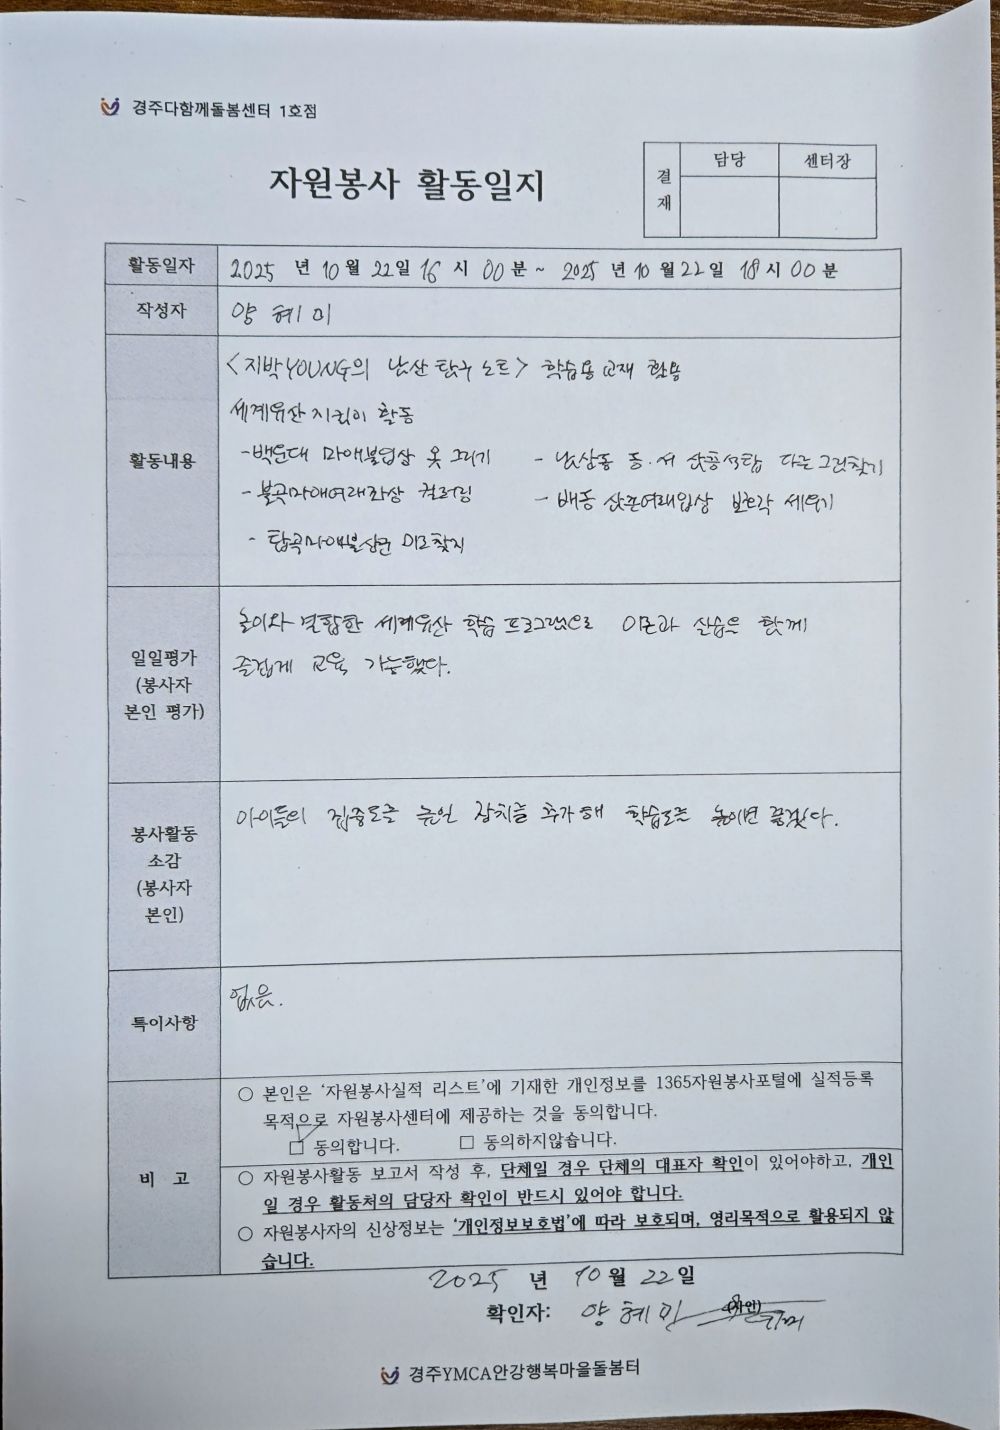 경주다함께돌봄센터 1호점
자원봉사 활동일지
결재 담당 센터장
활동일자 2025 년 10 월 22 일 16 시 00 분 ~ 2025 년 10 월 22 일 18 시 00 분
작성자 양 혜 미
<지박YOUNG의 남산 탐구 노트> 학습용 교재 활용
세계유산 지킴이 활동
활동내용
-백운대 마애불입상 옷 그리기 - 남산동 동·서 삼층석탑 다른그림찾기
-불곡마애여래좌상 컬러링 - 배동 삼존여래입상 보호각 세우기
- 탑곡마애불상군 미로찾기
일일평가
(봉사자
본인 평가)
놀이와 결합한 세계유산 학습 프로그램으로 이론과 실습을 함께
즐겁게 교육 가능했다.
봉사활동
소감
(봉사자
본인)
아이들의 집중도를 높일 장치를 추가해 학습도를 높이면 좋겠다.
특이사항
없음.
비 고
○ 본인은 '자원봉사실적 리스트'에 기재한 개인정보를 1365자원봉사포털에 실적등록
목적으로 자원봉사센터에 제공하는 것을 동의합니다.
☑ 동의합니다. □ 동의하지않습니다.
○ 자원봉사활동 보고서 작성 후, 단체일 경우 단체의 대표자 확인이 있어야하고, 개인
일 경우 활동처의 담당자 확인이 반드시 있어야 합니다.
○ 자원봉사자의 신상정보는 '개인정보보호법'에 따라 보호되며, 영리목적으로 활용되지 않
습니다.
2025 년 10 월 22 일
확인자: 양 혜 미 (사인)
경주YMCA안강행복마을돌봄터